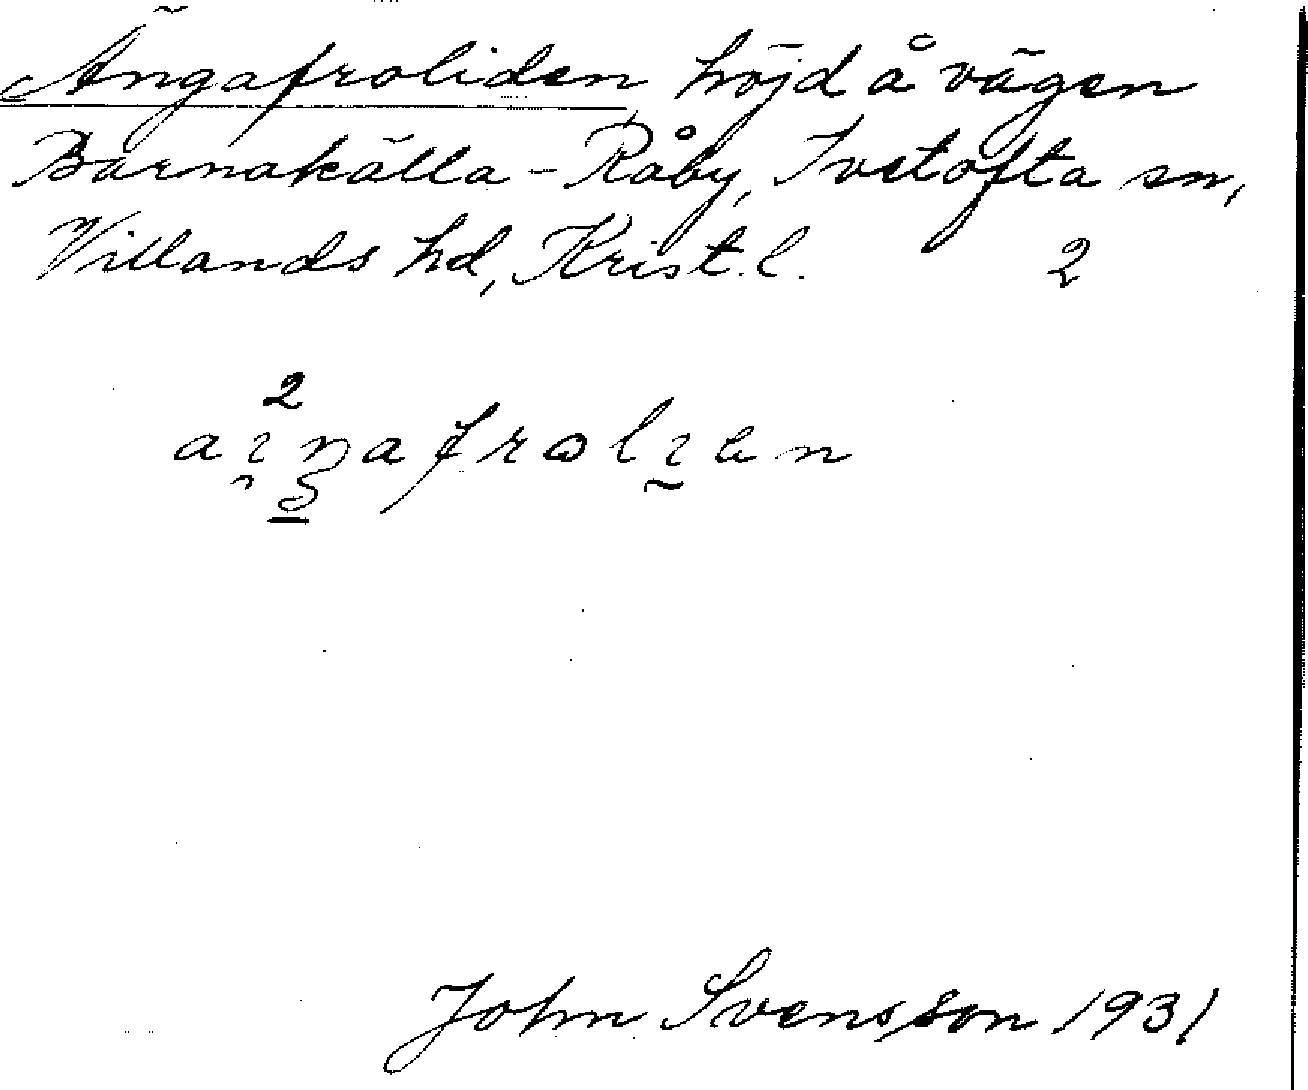 Ängafroliden, höjd å vägen
Barnakälla - Råby, Ivetofta sn,
Villands hd, Krist. l. 2
John Svensson 1931